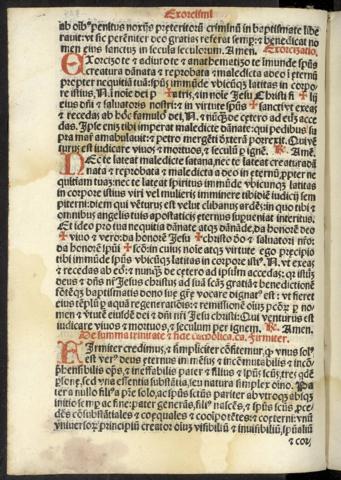 Exorcismi
ab oĩbꝰ penitus noxijs preteritoꝝ criminũ in baptismate libe
rauit: vt sic perẽniter deo gratias referat semꝑ: & benedicat no
men eius sanctus in secula seculorum. Amen. Exorcizatio.
EXorcizo te & adiuro te & anathematizo te immũde spũs
creatura dãnata & reprobata & maledicta a deo in eternũ
propter nequitiã tuã: spũs immũde vbicũqꝫ latitas in corpo
re istius, N. in noĩe dei p ✠ atris, in noĩe Jesu Christi fi ✠ lij
eius dñi & saluatoris nostri: & in virtute spũs ✠ sancti: vt exeas
& recedas ab hoc famulo dei, N. & nũcqꝫ de cetero ad eũ acce
das. Ipse enĩ tibi imperat maledicte dãnate: qui pedibus su
pra mare ambulauit: & petro mergẽti dexterã porrexit. Qui vẽ
turus est iudicare viuos & mortuos, & seculũ ꝑ ignẽ. ℟. Amẽ.
NEc te lateat maledicte satana, nec te lateat creatura dã
nata & reprobata & maledicta a deo in eternũ, ꝓpter ne
quitiam tuã: nec te lateat spiritus immũde vbicunqꝫ latitas
in corpore istius viri vel mulieris imminere tibi diẽ iudicij sem
piterni: diem qui vẽturus est velut clibanus ardẽs: in quo tibi &
omnibus angelis tuis apostaticis eternus supueniat interitus.
Et ideo pro tua nequitia dãnate atqꝫ dãnãde, da honorẽ deo
✠ viuo & vero: da honorẽ Jesu ✠ christo dño & saluatori nr̃o:
da honorẽ spũi ✠ scõ: in cuius noĩe atqꝫ virtute ego precipio
tibi immũde spũs vbicũqꝫ latitas in corpore iste. N. vt exeas
& recedas ab eo: & nunqꝫ de cetero ad ipsum accedas: qꝛ istũ
deus & dñs nr̃ Jesus christus ad suã scãꝫ gratiã & benedictionẽ
fõtẽqꝫ baptismatis dono sue gr̃e vocare dignatꝰ est: vt fieret
eius tẽplũ ꝑ aquã regenerationis: & remissionẽ oĩuz pctõꝝ. in no
mine & virtute eiusdẽ dei & dñi nr̃i Jesu christi: Qui venturus est
iudicare viuos & mortuos, & seculum per ignem. ℟. Amen.
De summa trinitate & fide catholica. ca. firmiter.
FIrmiter credimus, & simpliciter cõfitemur, qꝙ vnus sol
est verꝰ deus eternus imẽsus & incõmutabilis & incõ
phensibilis oĩps, & ineffabilis pater & filius & spũs scũs, tres qdẽ
ꝑsone, sed vna essentia substãtia, seu natura simplex oĩno. Pa
ter a nullo filiꝰ a pr̃e solo, ac spũs scũs pariter ab vtroqꝫ absqꝫ
initio semꝑ ac fine: pater generãs, filiꝰ nascẽs, & spũs scũs ꝓce
dẽs cõsubstãtiales & coequales & coõipotẽtes: & coeterni: vnũ
vniuersoꝝ principiũ creator oĩuꝫ visibiliũ & inuisibiliũ, spũaliũ
& cor,